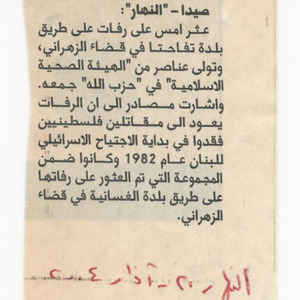 صيدا – "النهار":
عثر امس على رفات على طريق
بلدة تفاحتا في قضاء الزهراني،
وتولى عناصر من "الهيئة الصحية
الاسلامية" في "حزب الله" جمعه.
واشارت مصادر الى ان الرفات
يعود الى مقاتلين فلسطينيين
فقدوا في بداية الاجتياح الاسرائيلي
للبنان عام 1982 وكانوا ضمن
المجموعة التي تم العثور على رفاتها
على طريق بلدة الغسانية في قضاء
الزهراني.
النهار ٢٠ - آذار ٢٠٠٤